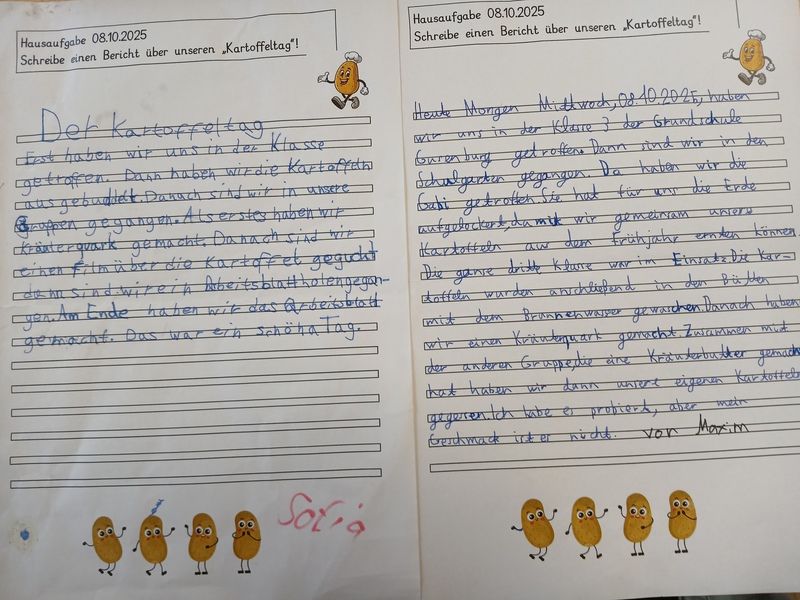 Hausaufgabe 08.10.2025
Schreibe einen Bericht über unseren „Kartoffeltag"!
Der Kartoffeltag
Erst haben wir uns in der Klasse
getroffen. Dann haben wir die Kartoffeln
aus gebuddelt. Danach sind wir in unsere
Gruppen gegangen. Als erstes haben wir
Kräuterquark gemacht. Danach sind wir
einen Film über die Kartoffel geguckt
dann sind wir ein Arbeitsblatt holen gegan-
gen. Am Ende haben wir das Arbeitsblatt
gemacht. Das war ein schöha Tag.
Sofia
Hausaufgabe 08.10.2025
Schreibe einen Bericht über unseren „Kartoffeltag"!
Heute Morgen Mittwoch, 08.10.2025, haben
wir uns in der Klasse 3 der Grundschule
getroffen. Dann sind wir in den
Schulgarten gegangen. Da haben wir die
Gabi getroffen. Sie hat für uns die Erde
aufgelockert, damit wir gemeinsam unsere
Kartoffeln aus dem frühjahr ernten können.
Die ganse dritte Klasse war im Einsatz. Die Kar-
toffeln wurden anschließend in den
mit dem Brunnenwasser gewaschen. Danach haben
wir einen Kräuterquark gemacht. Zusammen mit
der anderen Gruppe, die eine Kräuterbutter gemacht
hat haben wir dann unsere eigenen Kartoffeln
gegessen. Ich habe es probiert, aber mein
Geschmack ist er nicht. von Maxim